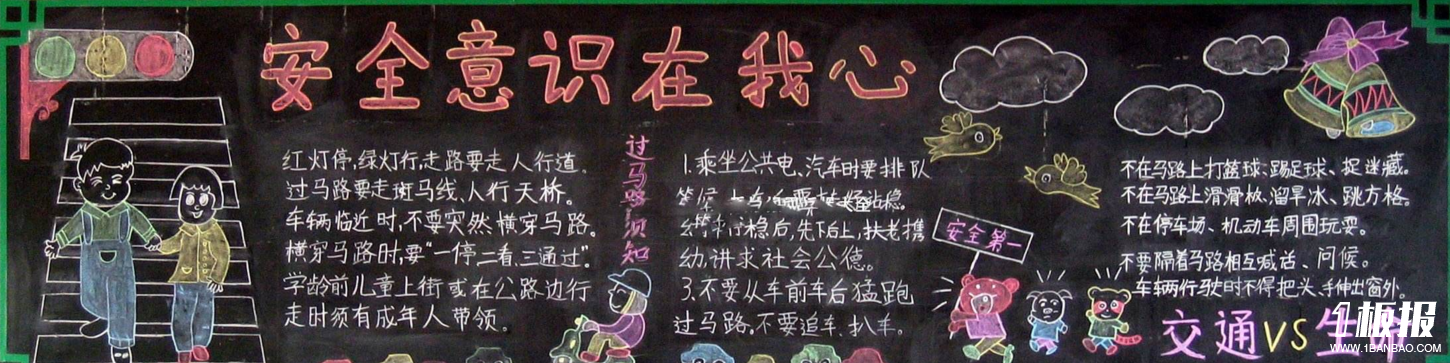 安全意识在我心
红灯停,绿灯行,走路要走人行道。
过马路要走斑马线、人行天桥。
车辆临近时,不要突然横穿马路。
横穿马路时,要"一停二看,三通过"。
学龄前儿童上街或在公路边行
走时须有成年人带领。
过马路须知
1.乘坐公共电、汽车时要排队
等候
稳后,先下后上,扶老携
幼,讲求社会公德。
3.不要从车前车后猛跑
过马路。不要追车、扒车。
安全第一
不在马路上打篮球、踢足球、捉迷藏。
不在马路上滑滑板、溜旱冰、跳方格。
不在停车场、机动车周围玩耍。
不要隔着马路相互喊话、问候。
车辆行驶时不得把头、手伸出窗外。
交通VS生
1板报
WWW.1BANBAO.COM